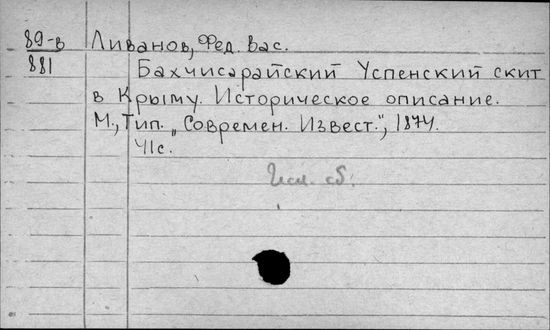 89-в Ливанов, Фед. Вас.
881 Бахчисарайский Успенский скит
в Крыму. Историческое описание.
М., Тип. „Современ. Извест.", 1874.
41с.